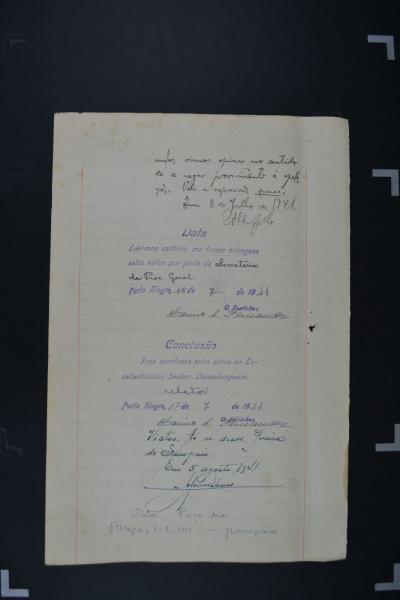 autos, vimos opinar no sentido
de se negar provimento á apela-
ção.
Em 8 de Julho de 1941.
Data
Em meu cartorio, me foram entregues
estes autos por parte da Secretaria
da Proc Geral
Porto Alegre, 15 de 7 de 1941
O Escrivão
Fernandes
Conclusão
Faço conclusos estes autos ao Ex-
cellentissimo Senhor Desembargador
relator
Porto Alegre, 17 de 7 de 1941
O Escrivão
Fernandes
Vistos. Ao sr. desor. Pereira
de Sampaio.
Em 5 agosto 1941
Visto. Peço dia.
P. Alegre, 7-8-941